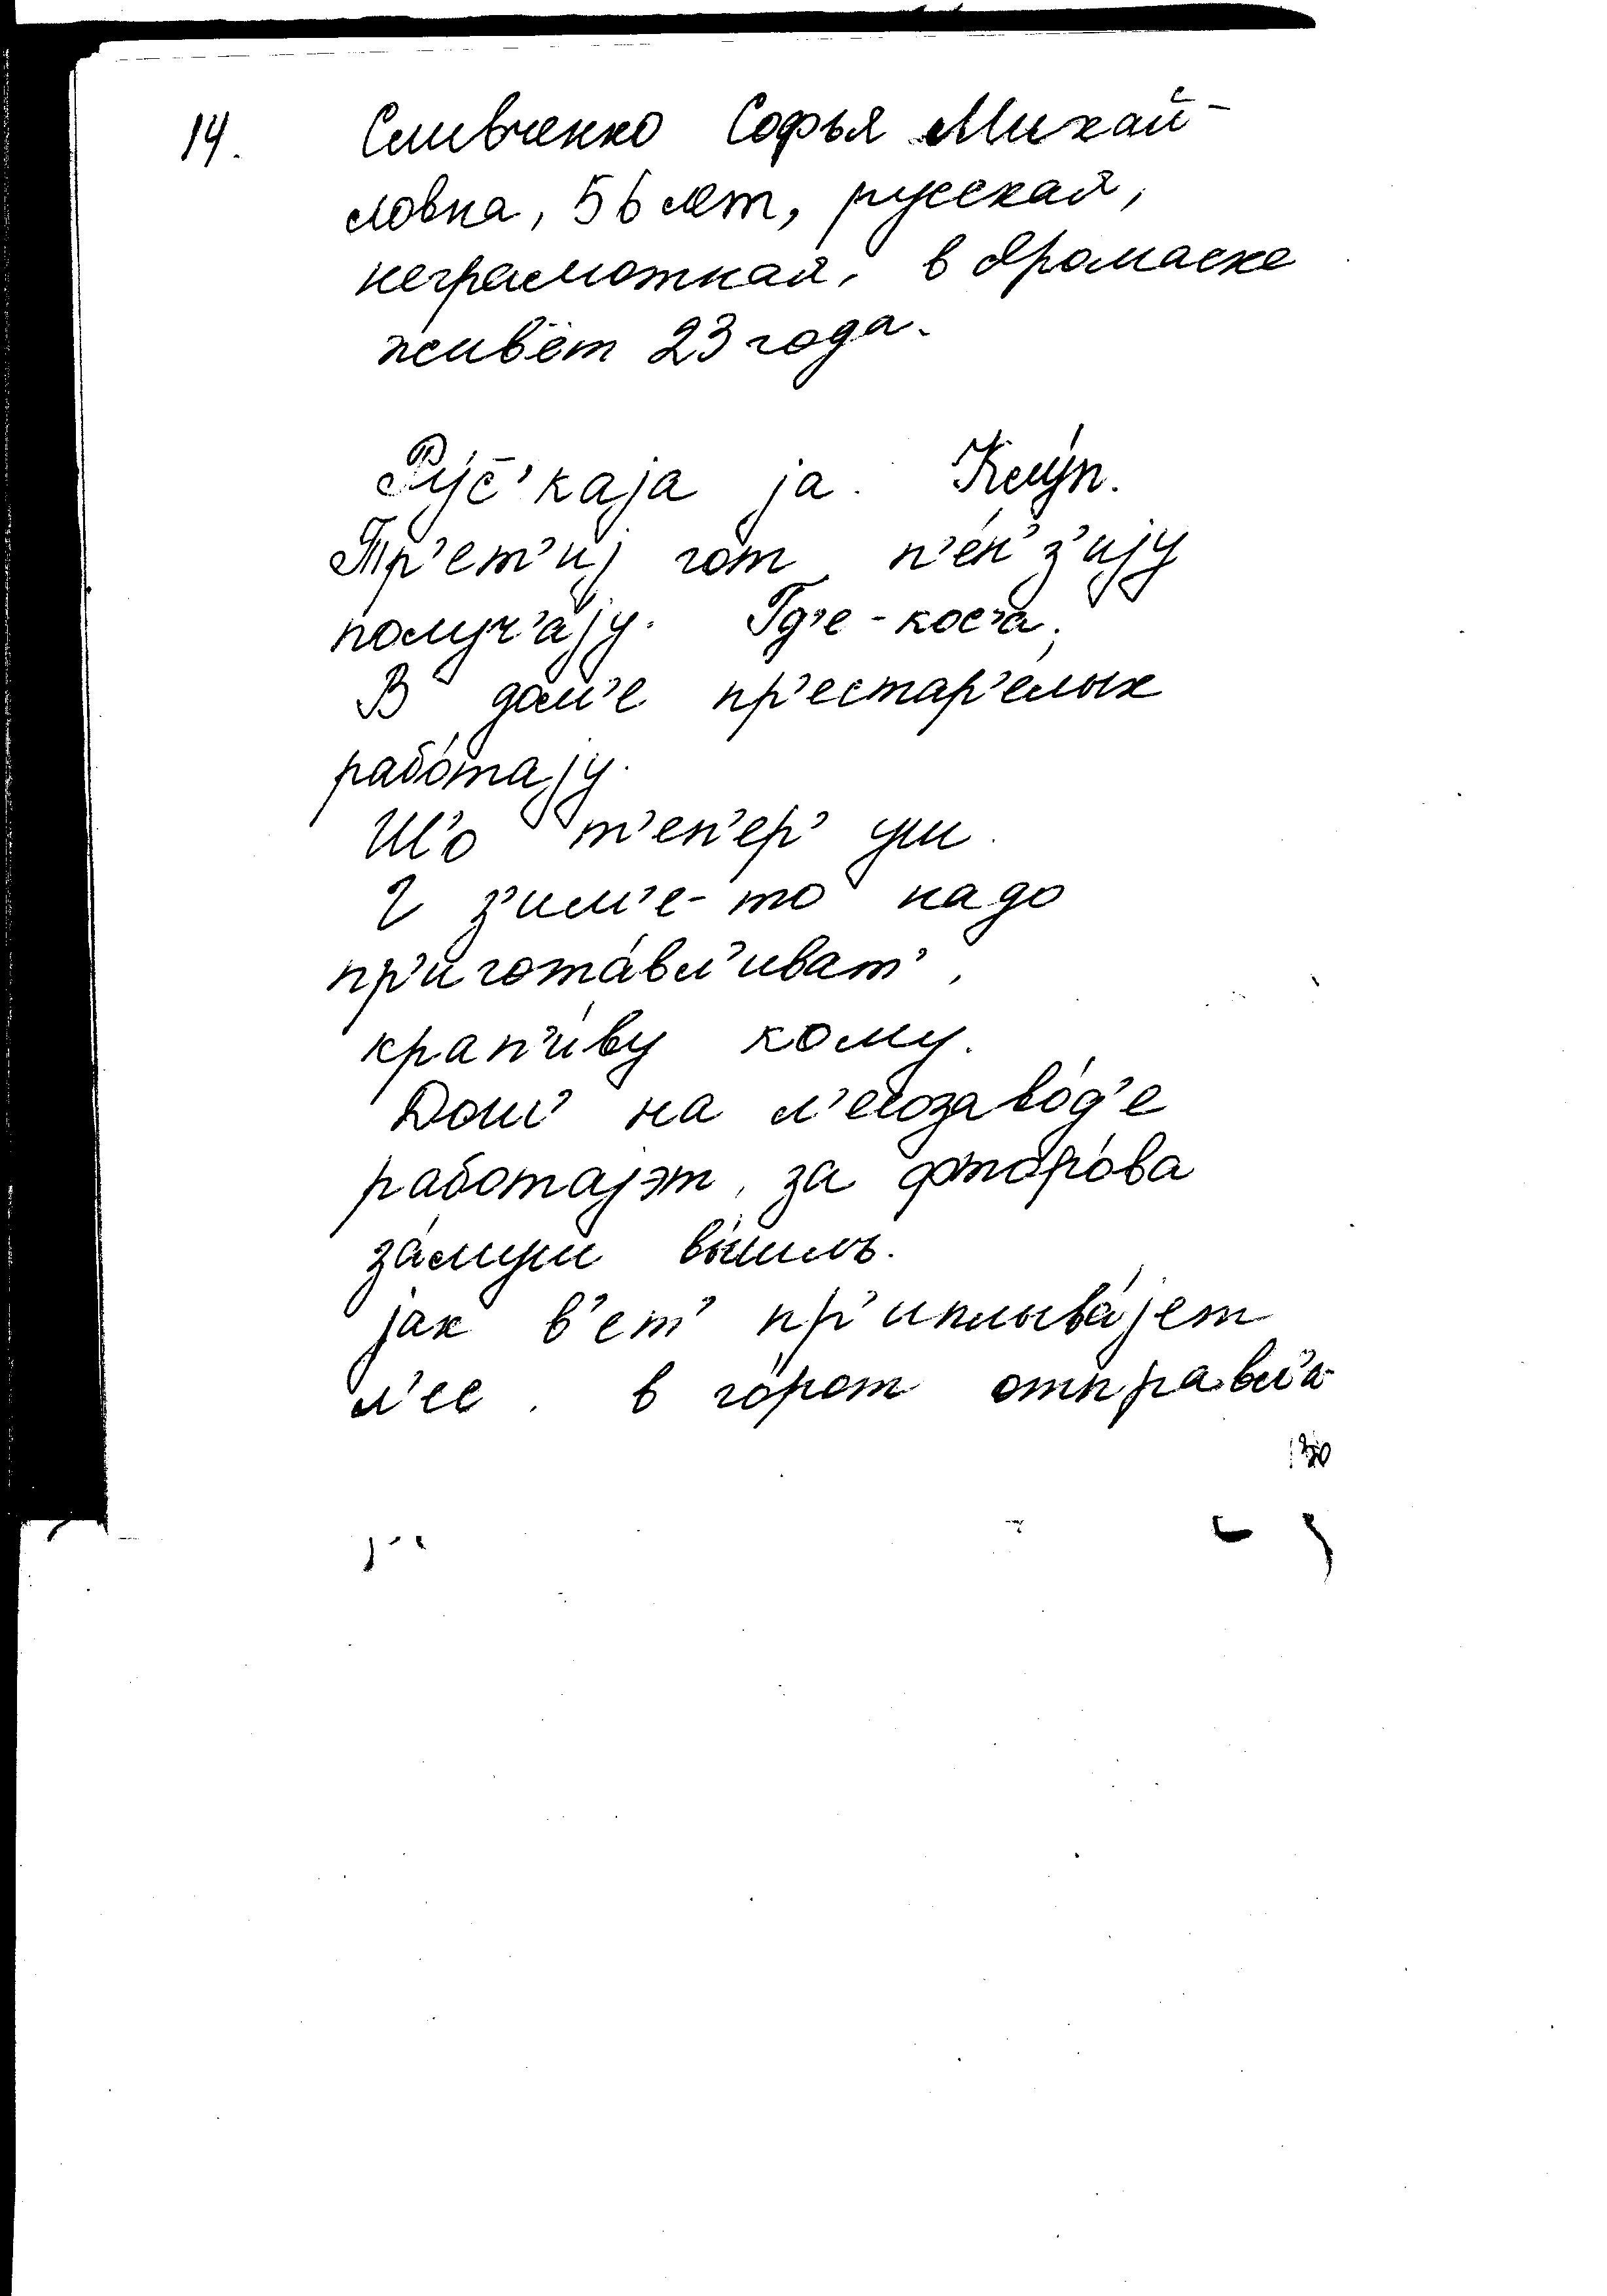 14. Сливченко Софья Михай-
ловна, 56 лет, русская,
неграмотная, в Яромаске
живёт 23 года.
Ру́с̄'каjа jа. Клу́п.
Тр'ет'иj гот п'е́н'з'иjу
получ'а́jу. Гд'е - кос'а́,
В дом'е пр'естар'е́лых
рабо́таjу.
Ш'о т'еп'ер' уш.
И з'им'е-то надо
пр'игота́вл'иват',
крап'и́ву кому.
Дош' на л'есозаво́д'е
работаjэт, за фторо́ва
за́муш вы́шлъ.
jак в'ет' пр'иплыва́jет
л'ес. в го́рот отправл'а-